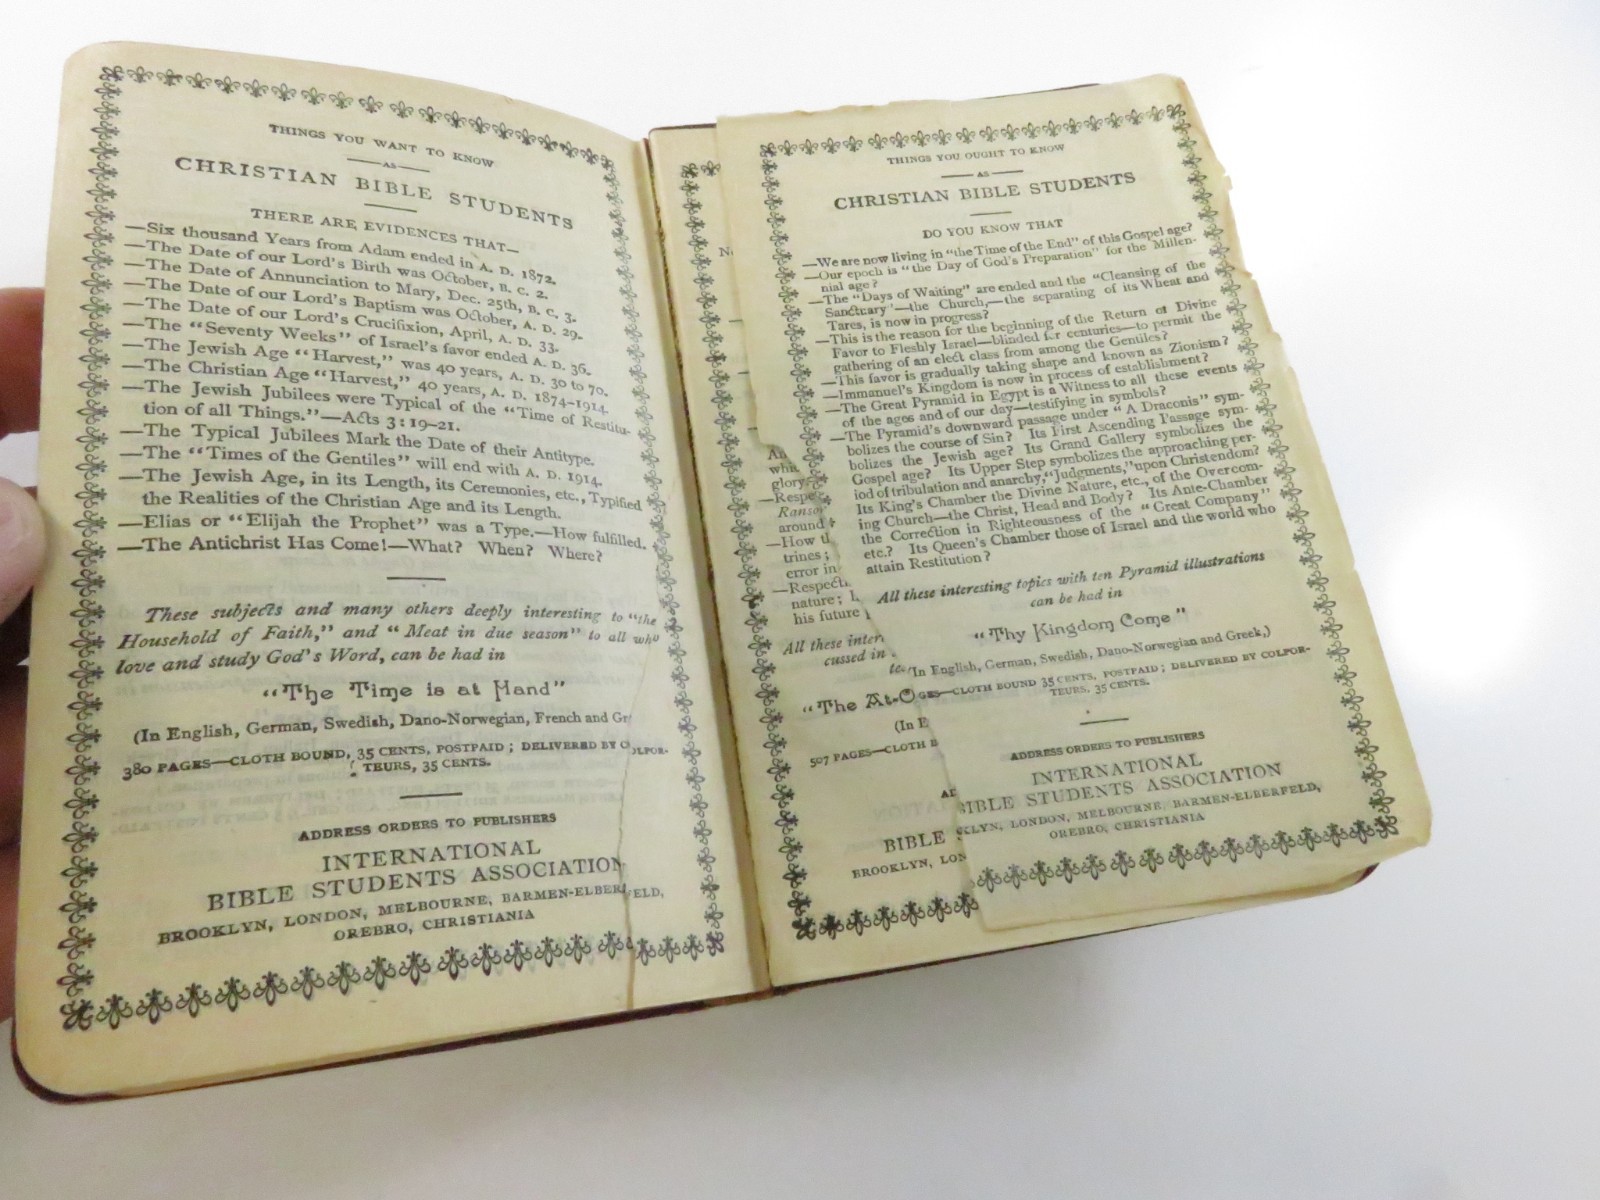 THINGS YOU WANT TO KNOW
AS
CHRISTIAN BIBLE STUDENTS
THERE ARE EVIDENCES THAT—
—Six thousand Years from Adam ended in A. D. 1872.
—The Date of our Lord's Birth was October, B. C. 2.
—The Date of Annunciation to Mary, Dec. 25th, B. C, 3.
—The Date of our Lord's Baptism was October, A. D. 29.
—The Date of our Lord's Crucifixion, April, A. D. 33.
—The "Seventy Weeks" of Israel's favor ended A. D. 36.
—The Jewish Age "Harvest," was 40 years, A. D. 30 to 70.
—The Christian Age "Harvest," 40 years, A. D. 1874-1914.
—The Jewish Jubilees were Typical of the "Time of Restitu-
tion of all Things."—Acts 3:19-21.
—The Typical Jubilees Mark the Date of their Antitype.
—The "Times of the Gentiles" will end with A. D. 1914.
—The Jewish Age, in its Length, its Ceremonies, etc., Typified
the Realities of the Christian Age and its Length.
—Elias or "Elijah the Prophet" was a Type.—How fulfilled.
—The Antichrist Has Come!—What? When? Where?
These subjects and many others deeply interesting to "the
Household of Faith," and "Meat in due season" to all who
love and study God's Word, can be had in
"The Time is at Hand"
(In English, German, Swedish, Dano-Norwegian, French and Gr
380 PAGES—CLOTH BOUND, 35 CENTS, POSTPAID; DELIVERED BY COLPOR-
TEURS, 35 CENTS.
ADDRESS ORDERS TO PUBLISHERS
INTERNATIONAL
BIBLE STUDENTS ASSOCIATION
BROOKLYN, LONDON, MELBOURNE, BARMEN-ELBERFELD,
OREBRO, CHRISTIANIA
THINGS YOU OUGHT TO KNOW
AS
CHRISTIAN BIBLE STUDENTS
DO YOU KNOW THAT
—We are now living in "the Time of the End" of this Gospel age?
—Our epoch is "the Day of God's Preparation" for the Millen-
nial age?
—The "Days of Waiting" are ended and the "Cleansing of the
Sanctuary"—the Church,—the separating of its Wheat and
Tares, is now in progress?
—This is the reason for the beginning of the Return of Divine
Favor to Fleshly Israel—blinded for centuries—to permit the
gathering of an elect class from among the Gentiles?
—This favor is gradually taking shape and known as Zionism?
—Immanuel's Kingdom is now in process of establishment?
—The Great Pyramid in Egypt is a Witness to all these events
of the ages and of our day—testifying in symbols?
—The Pyramid's downward passage under "A Draconis" sym-
bolizes the course of Sin? Its First Ascending Passage sym-
bolizes the Jewish age? Its Grand Gallery symbolizes the
Gospel age? Its Upper Step symbolizes the approaching per-
iod of tribulation and anarchy, "Judgments," upon Christendom?
Its King's Chamber the Divine Nature, etc., of the Overcom-
ing Church—the Christ, Head and Body? Its Ante-Chamber
the Correction in Righteousness of the "Great Company"
etc.? Its Queen's Chamber those of Israel and the world who
attain Restitution?
All these interesting topics with ten Pyramid illustrations
can be had in
"Thy Kingdom Come"
(In English, German, Swedish, Dano-Norwegian and Greek,)
GES—CLOTH BOUND 35 CENTS, POSTPAID; DELIVERED BY COLPOR-
TEURS, 35 CENTS.
ADDRESS ORDERS TO PUBLISHERS
INTERNATIONAL
BIBLE STUDENTS ASSOCIATION
CLYN, LONDON, MELBOURNE, BARMEN-ELBERFELD,
OREBRO, CHRISTIANIA
N
glory
—Respe
Ranso
around
—How t
trines;
error in
—Respect
nature;
his future
All these inter
cussed in
"The At-O
(In E
507 PAGES—CLOTH B
AD
BIBLE
BROOKLYN, LON